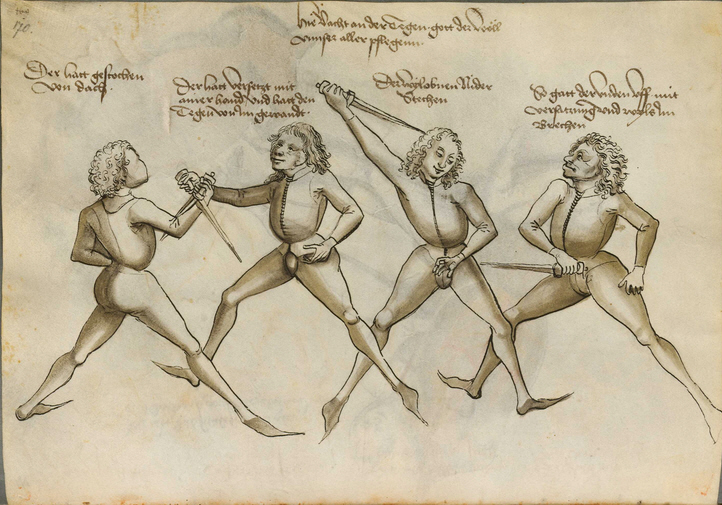 170.
hie vacht an der Tegen gott der wöll
vnnser aller pflegenn
Der hatt gestochen
von dach.
Der hatt versetzt mit
ainer hand vnd hatt den
Tegen von im gewandt.
Der wil obnen Nider
Stechen
So gatt der vnden vff mit
versatzung vnd
Brechen